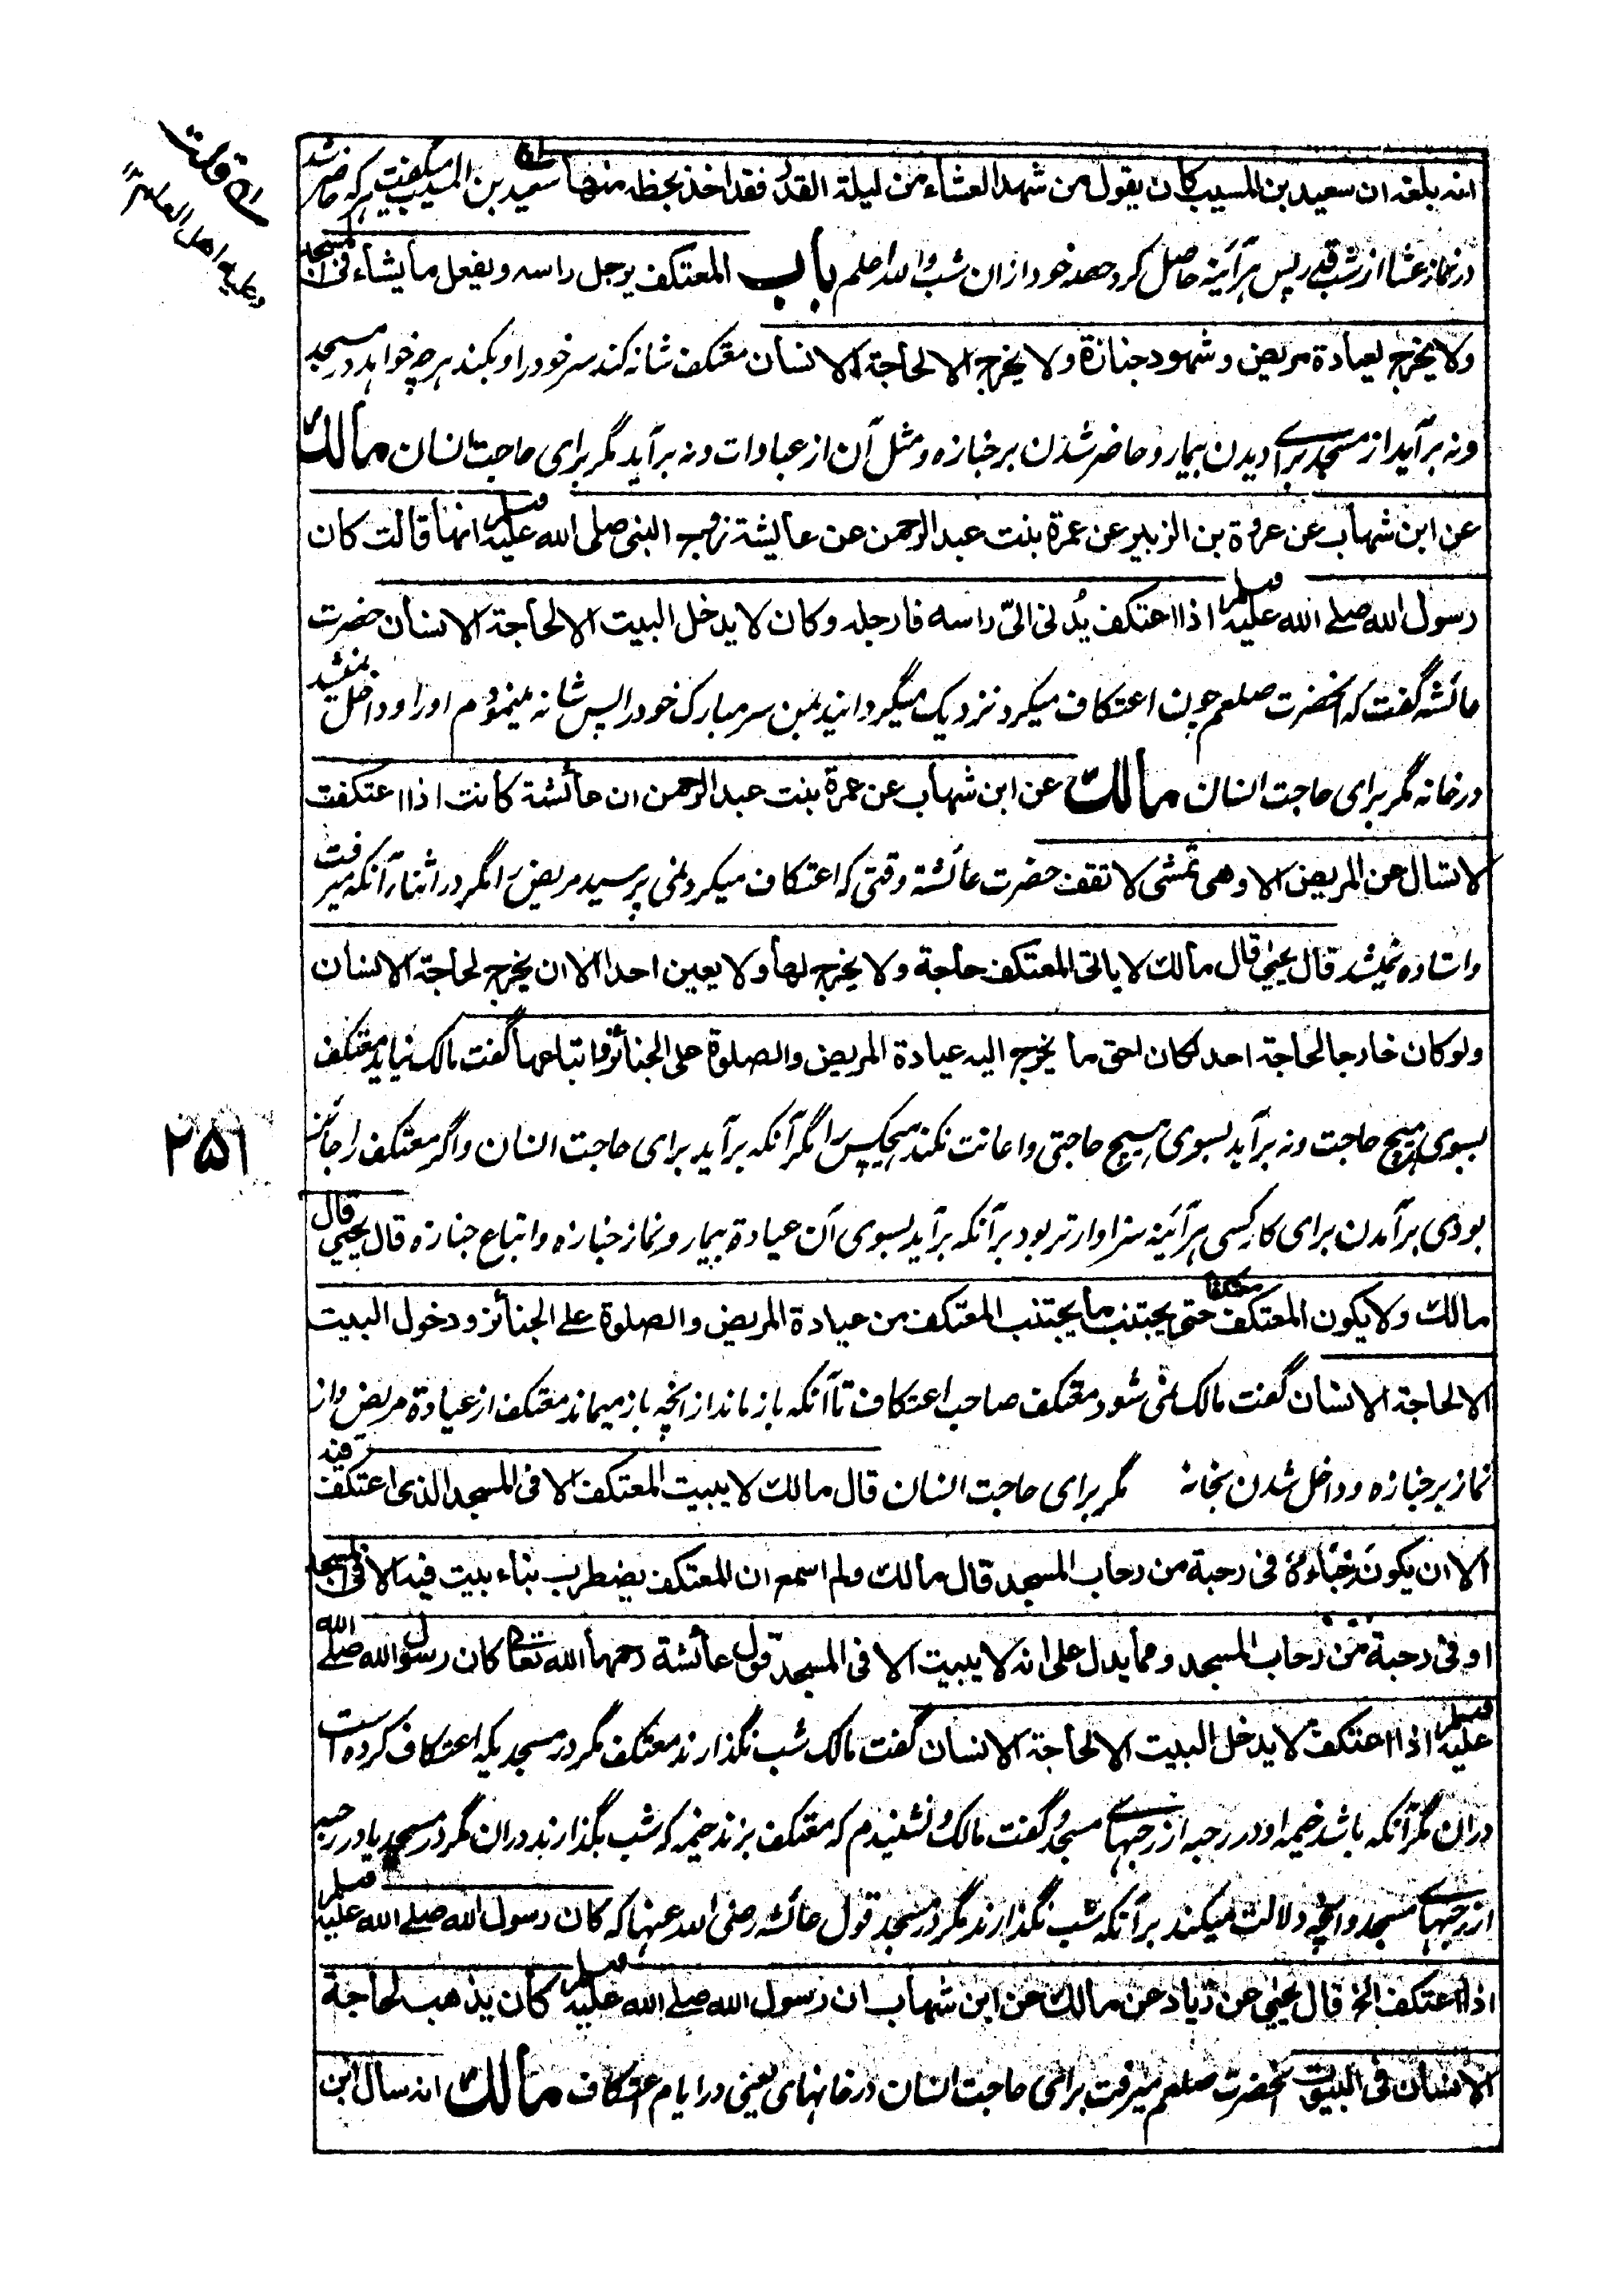 انه بلغه ان سعيد بن المسيب كان يقول من شهد العشاء من ليلة القدر فقد اخذ بحظه منها سعید بن المسیب میگفت هر که حاضر شد
در نماز عشا از شب قدر پس هر آئینه حاصل کرد حصه خود ازان شب والله اعلم باب المعتكف يرجل راسه ويفعل ما يشاء فى المسجد
ولا يخرج لعيادة مريض وشهود جنازة ولا يخرج الا لحاجة الانسان معتکف شانه کند سر خود را و بکند هر چه خواهد در مسجد
ونه برآید از مسجد برای دیدن بیمار و حاضر شدن بر جنازه و مثل آن از عبادات ونه برآید مگر برای حاجت انسان مالك
عن ابن شهاب عن عروة بن الزبير عن عمرة بنت عبد الرحمن عن عايشة زوج النبى صلى الله عليه وسلم انها قالت كان
رسول الله صلے الله عليه وسلم اذا اعتكف يُدنى الىّ راسه فارجله وكان لا يدخل البيت الا لحاجة الانسان حضرت
عائشه گفت که آنحضرت صلعم چون اعتکاف میکرد نزدیک میگردانید بمن سر مبارک خود را پس شانه مینمودم اورا و داخل نمیشد
در خانه مگر برای حاجت انسان مالك عن ابن شهاب عن عمرة بنت عبد الرحمن ان عائشة كانت اذا اعتكفت
لا تسال عن المريض الا وهى تمشى لا تقف حضرت عائشة وقتی که اعتکاف میکرد نمی پرسید مریض را مگر در اثنار آنکه میرفت
واستاده نمیشد قال يحيى قال مالك لا ياتى المعتكف حاجة ولا يخرج لها ولا يعين احدا الا ان يخرج لحاجة الانسان
ولو كان خارجا لحاجة احد لكان احق ما يخرج اليه عيادة المريض والصلوة على الجنائز واتباعها گفت مالک نیاید معتکف
بسوی هیچ حاجت ونه برآید بسوی هیچ حاجتی واعانت نکند هیچکس را مگر آنکه برآید برای حاجت انسان واگر معتکف را جائز
بودی برآمدن برای کار کسی هر آئینه سزاوارتر بود برآنکه برآید بسوی آن عیادة بیمار و نماز جنازه واتباع جنازه قال يحيى قال
مالك ولا يكون المعتكف معتكفا حتى يجتنب ما يجتنب المعتكف من عيادة المريض والصلوة على الجنائز ودخول البيت
الا لحاجة الانسان گفت مالک نمی شود معتکف صاحب اعتکاف تا آنکه باز ماند از آنچه باز میماند معتکف از عیادة مریض واز
نماز بر جنازه و داخل شدن بخانه مگر برای حاجت انسان قال مالك لا يبيت المعتكف الا فى المسجد الذى اعتكف فيه
الا ان يكون خباءهُ فى رحبة من رحاب المسجد قال مالك ولم اسمع ان المعتكف يضطرب بناء يبيت فيه الا فى المسجد
او فى رحبة من رحاب المسجد ومما يدل على انه لا يبيت الا فى المسجد قول عائشة رحمها الله تعالى كان رسول الله صلے الله
عليه وسلم اذا اعتكف لا يدخل البيت الا لحاجة الانسان گفت مالک شب نگذارند معتکف مگر در مسجدیکه اعتکاف کرده است
دران مگر آنکه باشد خیمه او در رحبه از رحبهای مسجد و گفت مالک و نشنیدم که معتکف بزند خیمه که شب بگذارند دران مگر در مسجد یا در رحبه
از رحبهای مسجد وانچه دلالت میکند برآنکه شب نگذارند مگر در مسجد قول عائشه رضی الله عنها که كان رسول الله صلے الله عليه وسلم
اذا اعتكف الخ قال يحيى عن زياد عن مالك عن ابن شهاب ان رسول الله صلے الله عليه وسلم كان يذهب لحاجة
الانسان فى البيوت آنحضرت صلعم میرفت برای حاجت انسان در خانهای یعنی در ایام اعتکاف مالك انه سال ابن
قلت
وعليه اهل العلم
۲۵۱